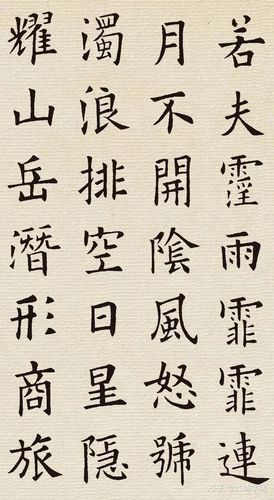 若夫霪雨霏霏連
月不開陰風怒號
濁浪排空日星隱
耀山岳潛形商旅
知乎